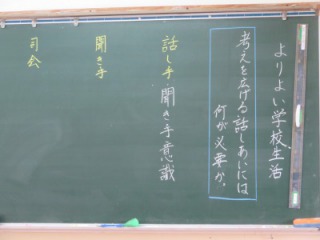 よりよい学校生活
考えを広げる話しあいには
何が必要か。
話し手 聞き手意識
聞き手
司会